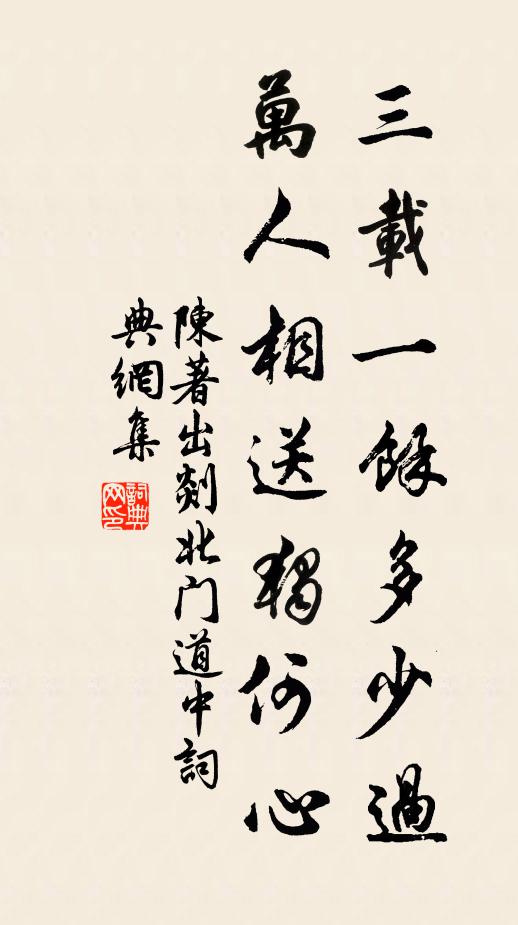 三載一餘多少過
萬人相送獨何心
陳著出剡北门道中詞
典網集
詞典网印